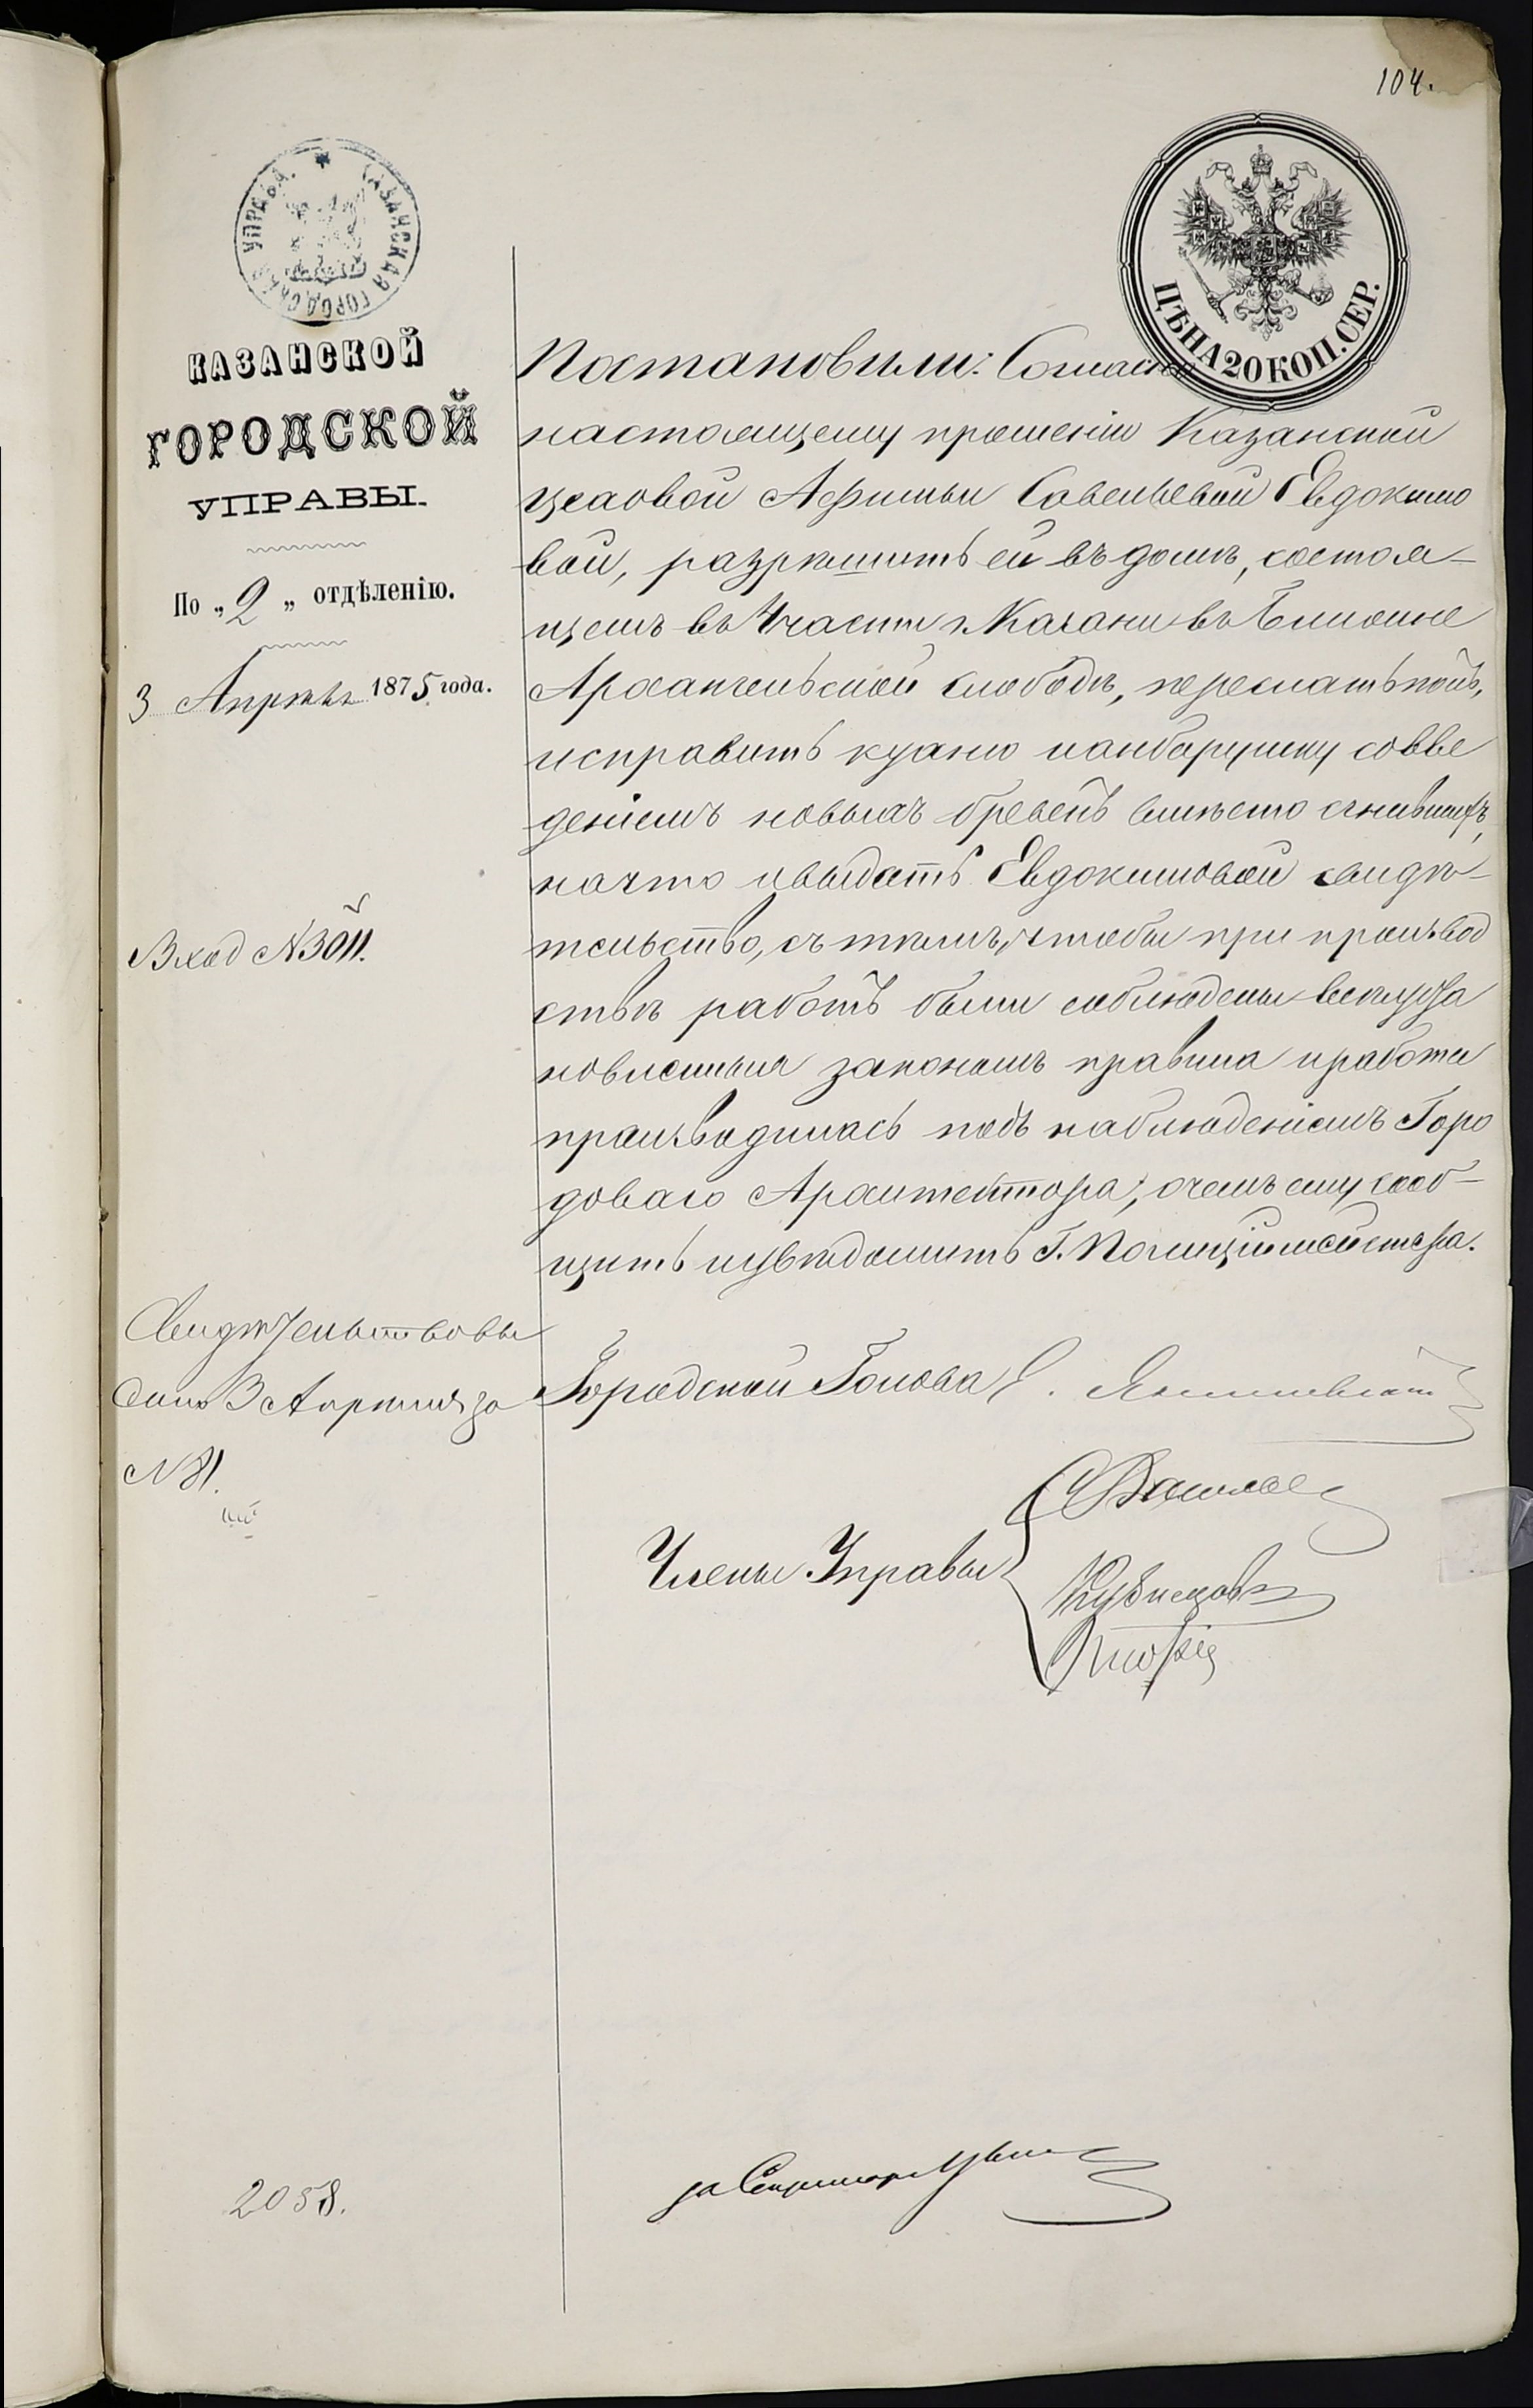 104.
КАЗАНСКАЯ ГОРОДСКАЯ УПРАВА.
ЦѢНА 20 КОП. СЕР.
КАЗАНСКОЙ
ГОРОДСКОЙ
УПРАВЫ.
По „2„ отдѣленію.
3 Апрѣля 1875 года.
Вход N 3011.
Свидѣтельство вы
дано 3 Апрѣля за
N 81.
2058.
Постановили: Согласно
настоящему прошенію Казанской
цеховой Афимьи Савельевой Евдокимо
вой, разрѣшить ей въ домѣ, состоя-
щемъ въ 4 части г. Казани въ Ближне
Архангельской слободѣ, переслать полъ,
исправить кухню и анбарушку съ вве
деніемъ новыхъ бревенъ вмѣсто сгнившихъ,
на что и выдать Евдокимовой свидѣ-
тельство, съ тѣмъ, чтобы при производ
ствѣ работъ были соблюдены всѣ уза
коненныя закономъ правила и работа
производилась подъ наблюденіемъ Горо
доваго Архитектора, о чемъ ему сооб-
щить и увѣдомить Г. Полиціймейстера.
Городской Голова Е. Янишевскій
Члены Управы
Кузнецовъ
за Секретаря